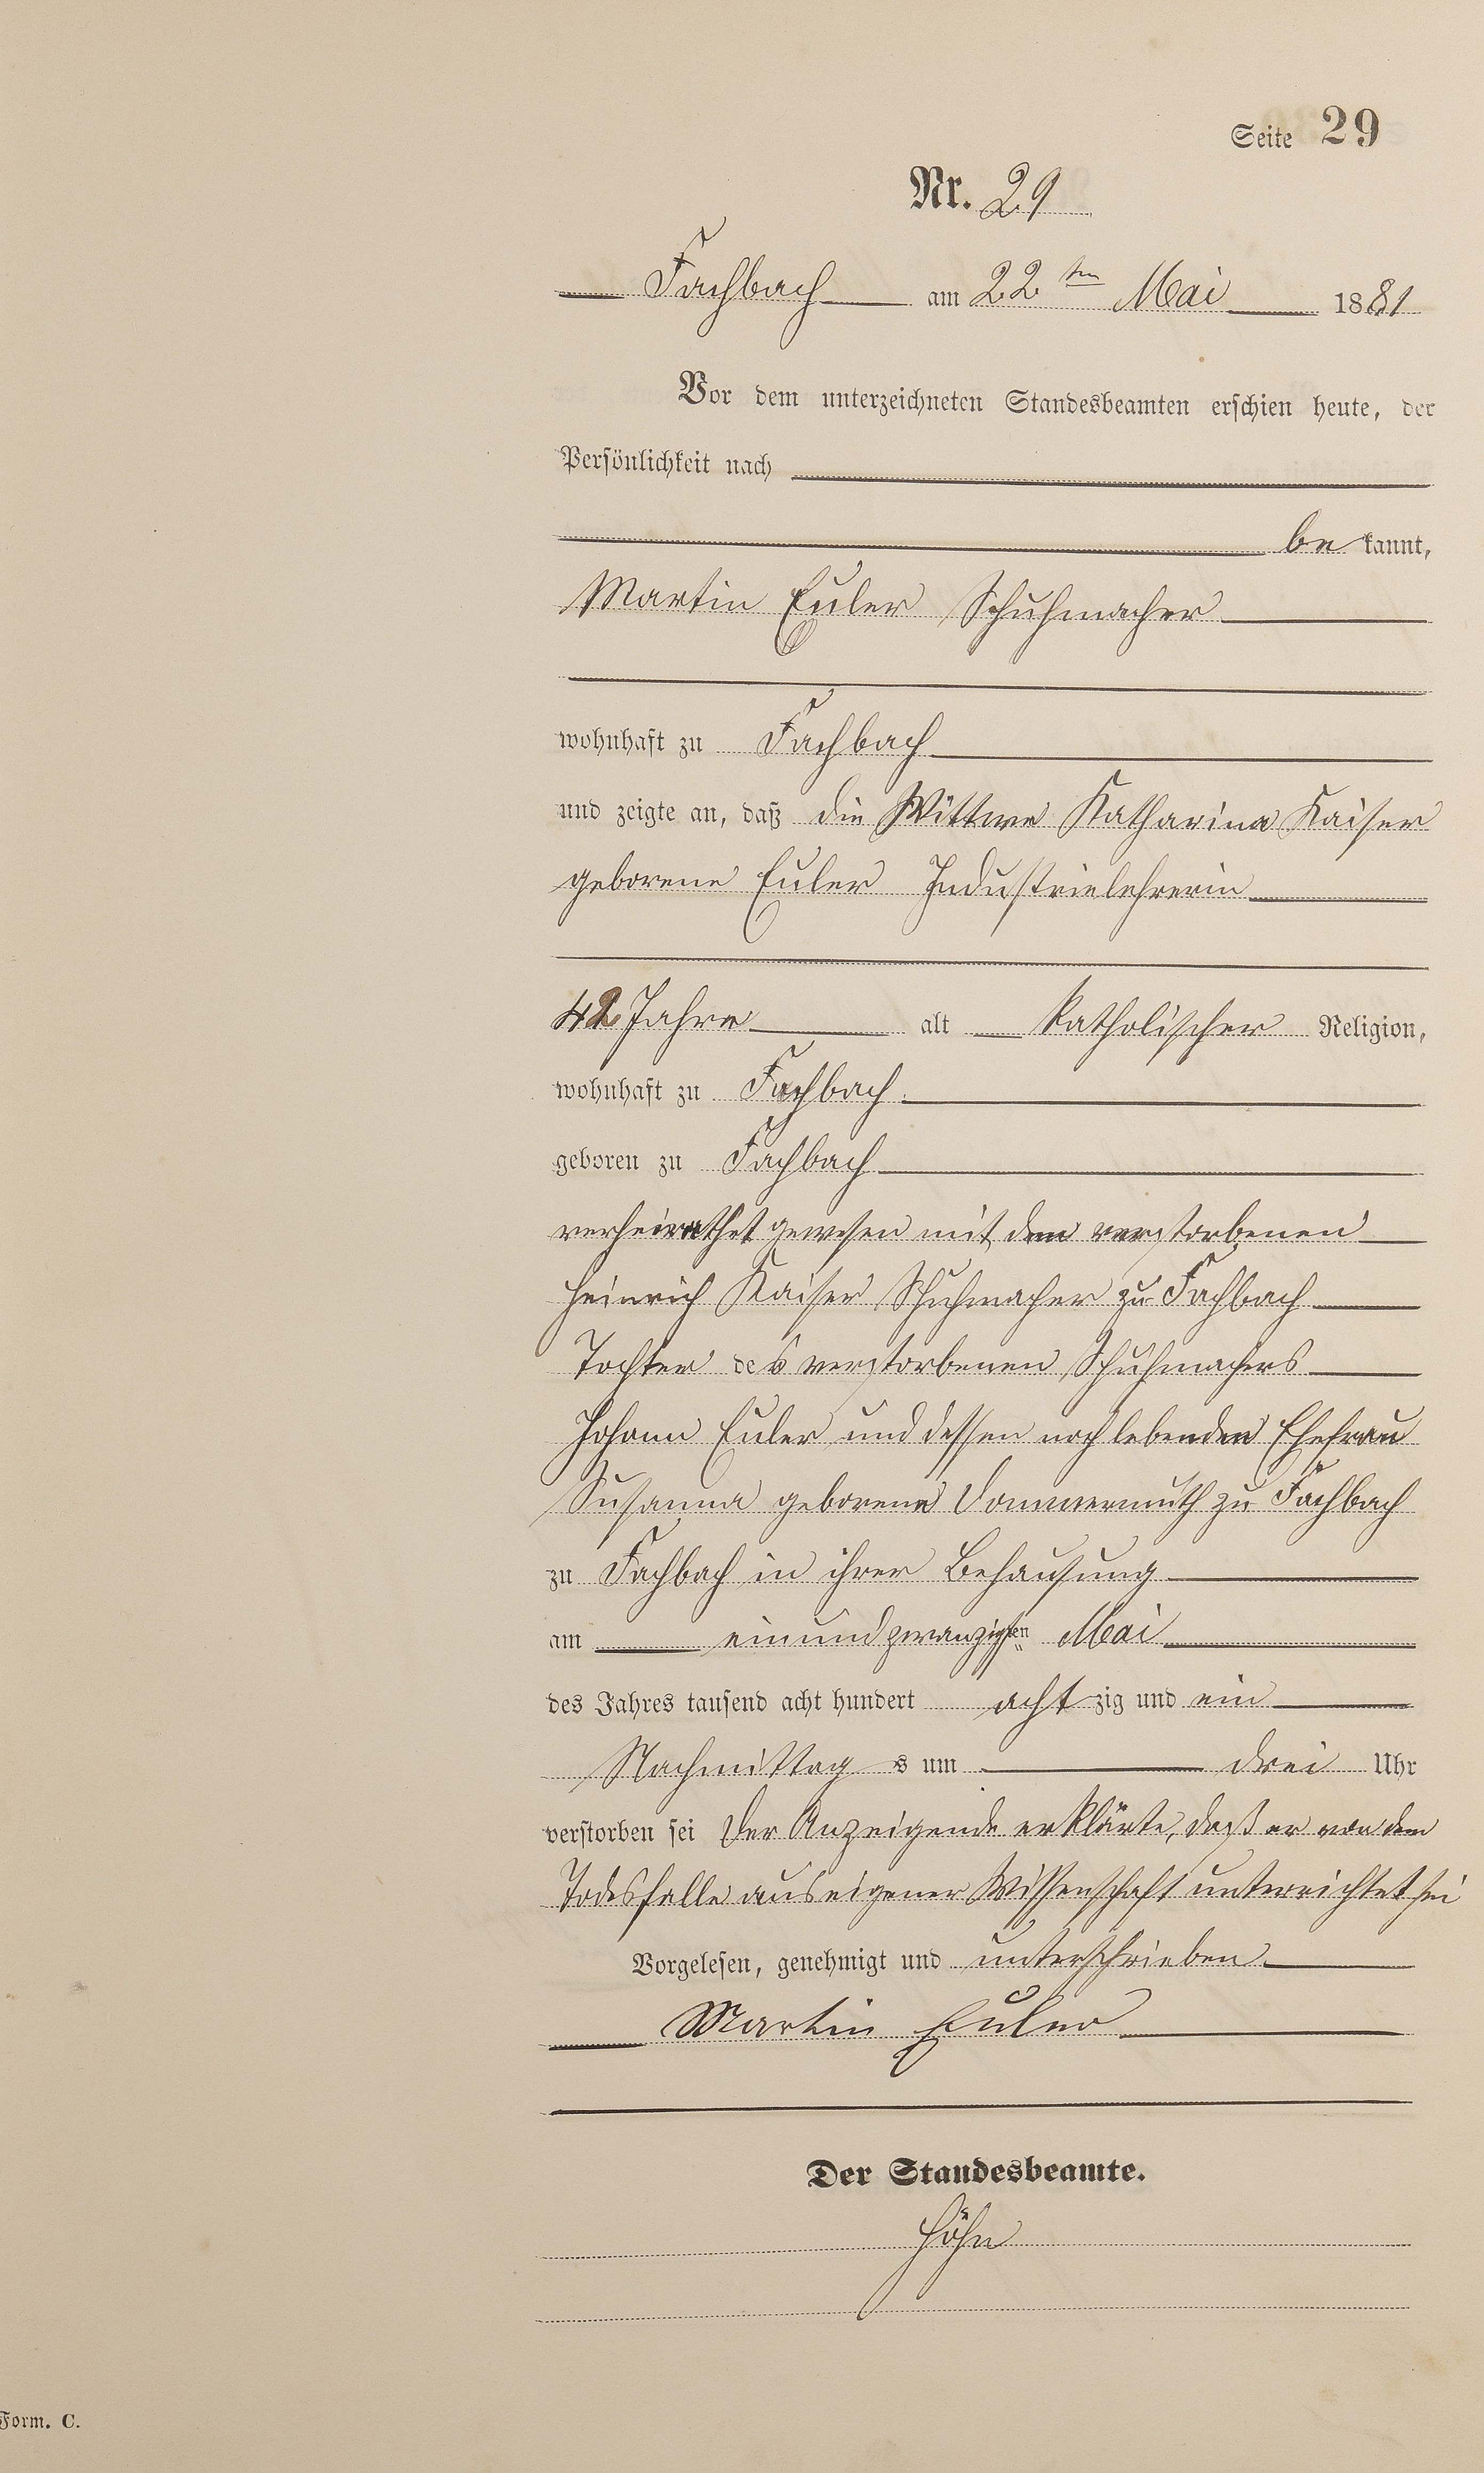 Seite 29
Nr. 29
Fachbach am 22ten Mai 1881
Vor dem unterzeichneten Standesbeamten erschien heute, der
Persönlichkeit nach
be kannt,
Martin Euler Schuhmacher
wohnhaft zu Fachbach
und zeigte an, daß die Wittwe Katharina Kaiser
geborene Euler Industrielehrerin
42 Jahre alt katholischer Religion,
wohnhaft zu Fachbach
geboren zu Fachbach
verheirathet gewesen mit dem verstorbenen
Heinrich Kaiser Schuhmacher zu Fachbach
Tochter des verstorbenen Schuhmachers
Johann Euler und dessen noch lebenden Ehefrau
Susanna geborene Dommermuth zu Fachbach
zu Fachbach in ihrer Behausung
am einundzwanzigsten Mai
des Jahres tausend acht hundert acht zig und ein
Nachmittag s um drei Uhr
verstorben sei Der Anzeigende erklärte, daß er von dem
Todesfalle aus eigener Wissenschaft unterrichtet sei
Vorgelesen, genehmigt und unterschrieben
Martin Euler
Der Standesbeamte.
Höhn
Form. C.